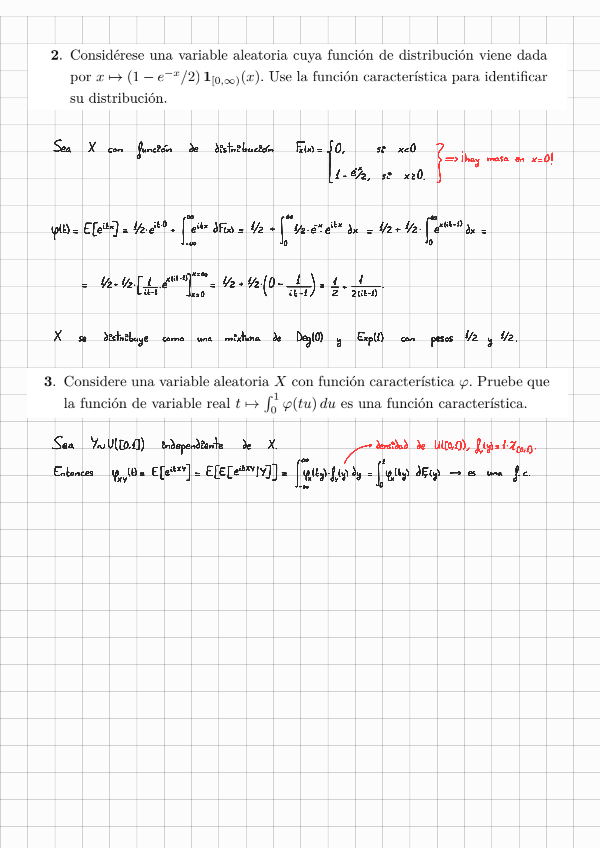 2. Considérese una variable aleatoria cuya función de distribución viene dada
por x ↦ (1 − e^{−x}/2) 1_{[0,∞)}(x). Use la función característica para identificar
su distribución.
Sea X con función de distribución F_X(x) = { 0, si x<0 ; 1 - e^{-x}/2, si x≥0. } ⇒ ¡hay masa en x=0!
φ(t) = E[e^{itX}] = 1/2·e^{it·0} + ∫_{-∞}^{∞} e^{itx} dF(x) = 1/2 + ∫_0^∞ 1/2·e^{-x} e^{itx} dx = 1/2 + 1/2·∫_0^∞ e^{x(it-1)} dx =
= 1/2 + 1/2·[1/(it-1) e^{x(it-1)}]_{x=0}^{x=∞} = 1/2 + 1/2·(0 - 1/(it-1)) = 1/2 + 1/2(it-1).
X se distribuye como una mixtura de Deg(0) y Exp(1) con pesos 1/2 y 1/2.
3. Considere una variable aleatoria X con función característica φ. Pruebe que
la función de variable real t ↦ ∫_0^1 φ(tu) du es una función característica.
Sea Y∼U([0,1]) independiente de X.
densidad de U([0,1]), f_Y(y) = 1·χ_{[0,1]}.
Entonces φ_{XY}(t) = E[e^{itXY}] = E[E[e^{itXY}|Y]] = ∫_{-∞}^{∞} φ_X(ty)·f_Y(y) dy = ∫_0^1 φ_X(ty) dF_Y(y) → es una f.c.